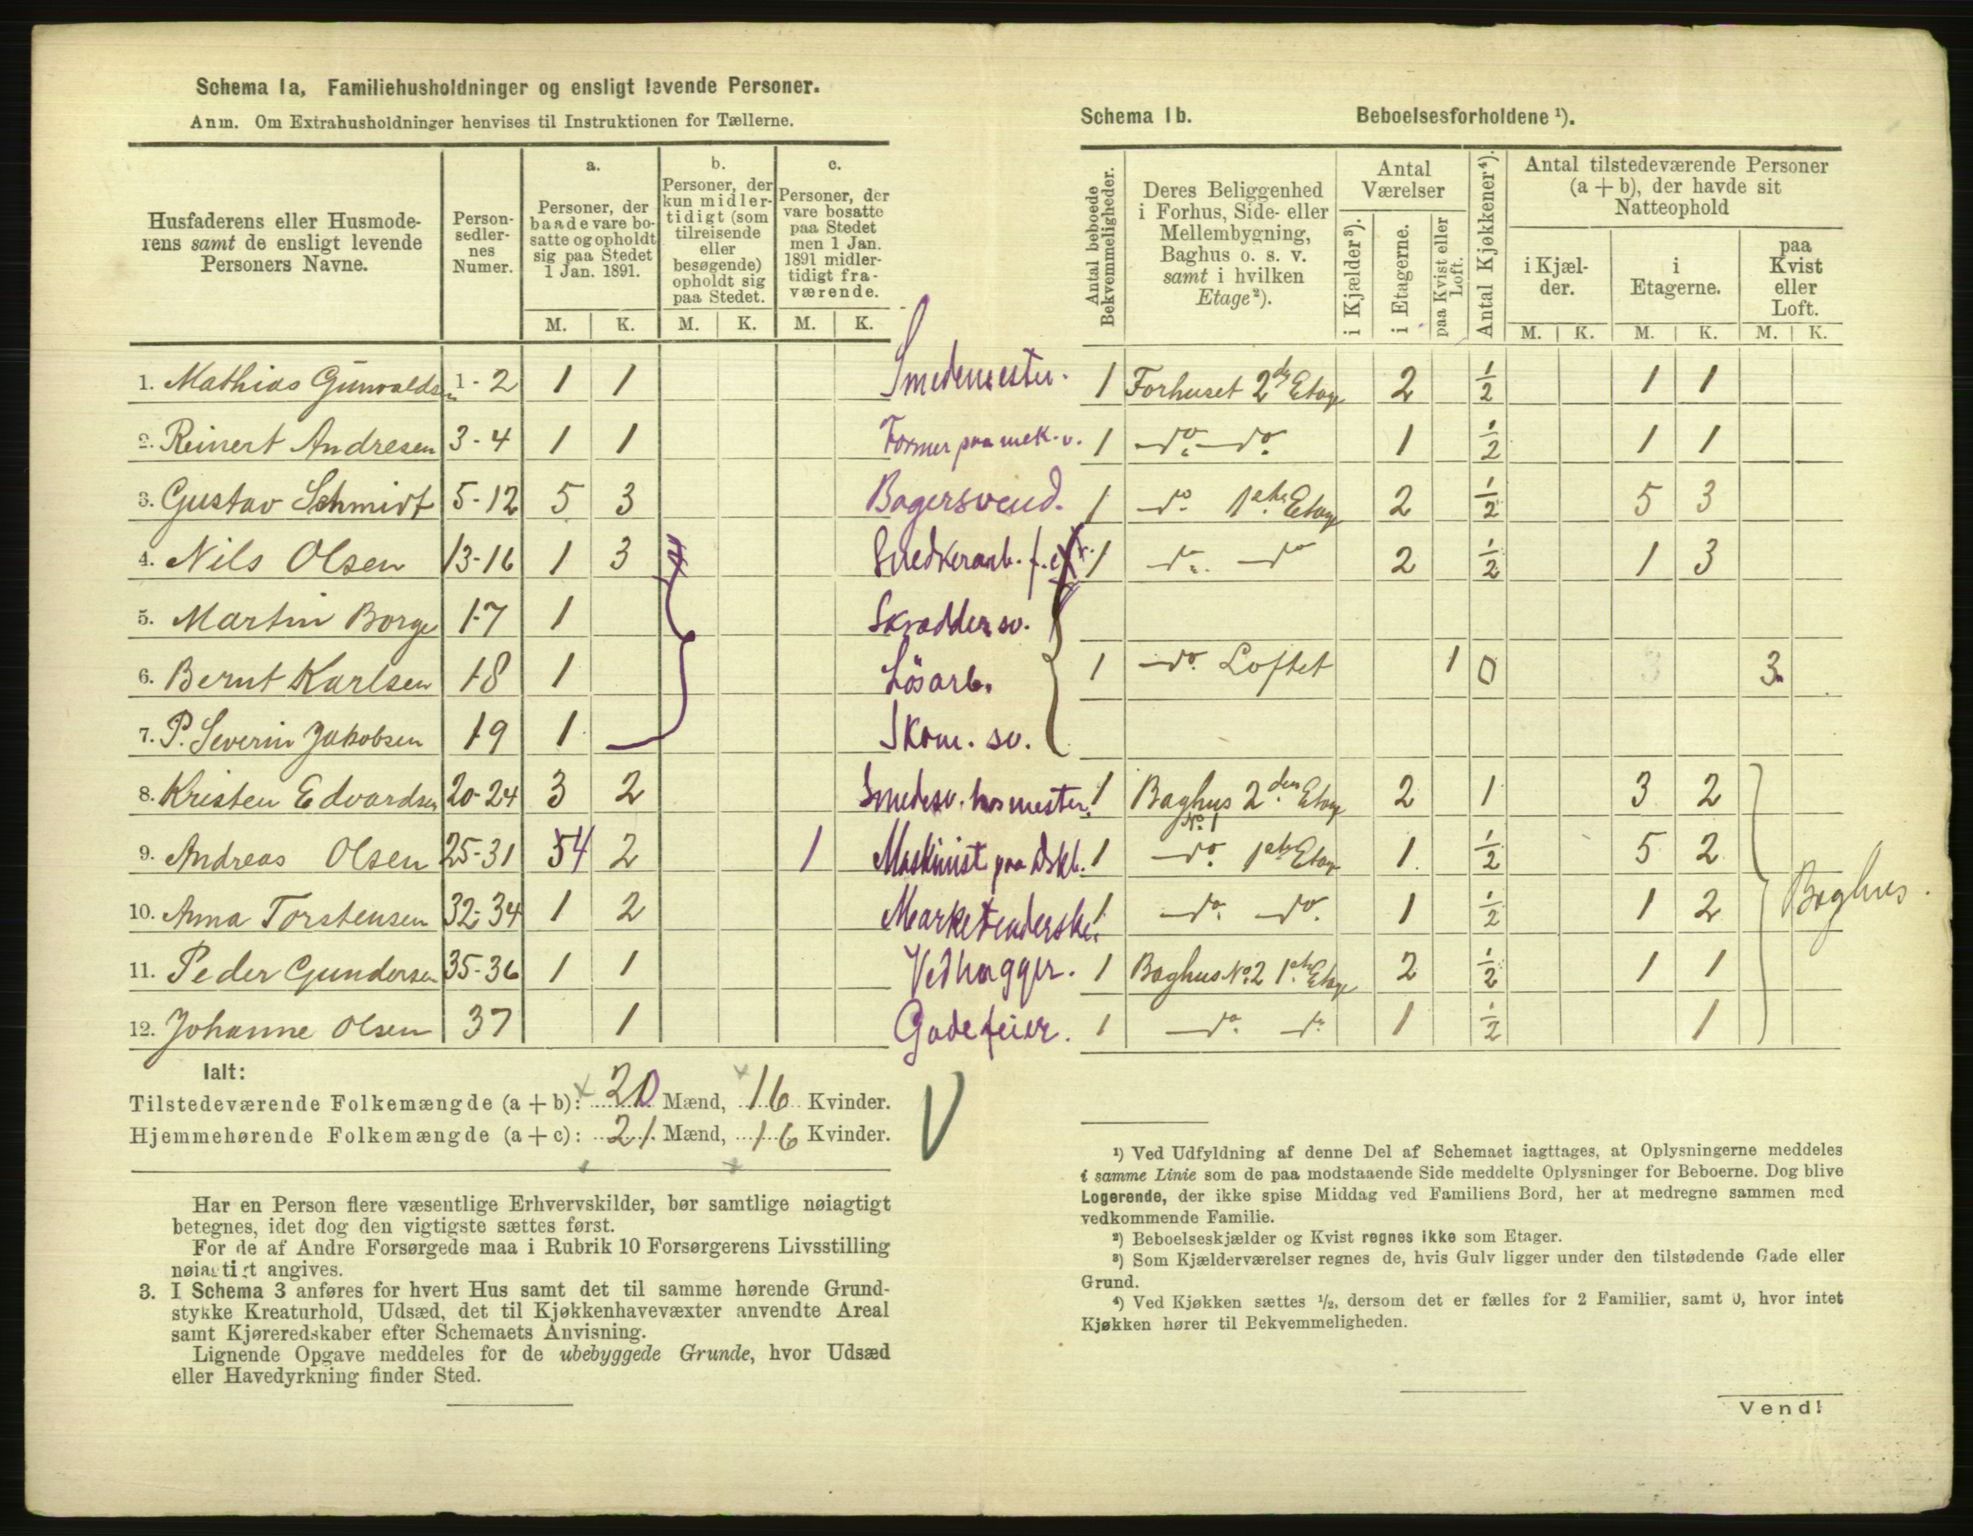 Schema 1a, Familiehusholdninger og ensligt levende Personer.
Anm. Om Extrahusholdninger henvises til Instruktionen for Tællerne.
Husfaderens eller Husmoderens samt de ensligt levende Personers Navne.
Personsedlernes Numer.
a.
Personer, der baade vare bosatte og opholdt sig paa Stedet 1 Jan. 1891.
b.
Personer, der kun midlertidigt (som tilreisende eller besøgende) opholdt sig paa Stedet.
c.
Personer, der vare bosatte paa Stedet men 1 Jan. 1891 midlertidigt fraværende.
M. K. M. K. M. K.
1. Mathias Gunvaldsen 1-2 1 1 Smedemester.
2. Reinert Andresen 3-4 1 1 Former paa mek. v.
3. Gustav Schmidt 5-12 5 3 Bagersvend.
4. Nils Olsen 13-16 1 3 Snedkerarb. f.
5. Martin Borge 17 1 Skrædder sv.
6. Bernt Karlsen 18 1 Løsarb.
7. P. Severin Jakobsen 19 1 Skom. sv.
8. Kristen Edvardsen 20-24 3 2 Smedesv. hos mester.
9. Andreas Olsen 25-31 54 2 1 Maskinist paa Dskb.
10. Anna Torstensen 32-34 1 2 Marketenderske.
11. Peder Gundersen 35-36 1 1 Vedhugger.
12. Johanne Olsen 37 1 Gadefeier.
Ialt:
Tilstedeværende Folkemængde (a + b): 20 Mænd, 16 Kvinder.
Hjemmehørende Folkemængde (a + c): 21 Mænd, 16 Kvinder.
Har en Person flere væsentlige Erhvervskilder, bør samtlige nøiagtigt
betegnes, idet dog den vigtigste sættes først.
For de af Andre Forsørgede maa i Rubrik 10 Forsørgerens Livsstilling
nøiagtigt angives.
3. I Schema 3 anføres for hvert Hus samt det til samme hørende Grund-
stykke Kreaturhold, Udsæd, det til Kjøkkenhavevæxter anvendte Areal
samt Kjøreredskaber efter Schemaets Anvisning.
Lignende Opgave meddeles for de ubebyggede Grunde, hvor Udsæd
eller Havedyrkning finder Sted.
Schema 1b. Beboelsesforholdene ¹).
Antal beboede Bekvemmeligheder.
Deres Beliggenhed i Forhus, Side- eller Mellembygning, Baghus o. s. v. samt i hvilken Etage²).
Antal Værelser
i Kjælder³).
i Etagerne.
paa Kvist eller Loft.
Antal Kjøkkener⁴).
Antal tilstedeværende Personer (a + b), der havde sit Natteophold
i Kjælder.
i Etagerne.
paa Kvist eller Loft.
M. K. M. K. M. K.
1 Forhuset 2d Etage 2 ½ 1 1
1 do. do. 1 ½ 1 1
1 do. 1ste. Etage 2 ½ 5 3
1 do. do 2 ½ 1 3
1 do. Loftet 1 0 3 3
1 Baghus 2den Etage 2 1 3 2
No. 1
1 do. 1ste Etage 1 ½ 5 2
1 do. do. 1 ½ 1 2
1 Baghus No. 2 1ste. Etage 2 ½ 1 1
1 do. do. 1 ½ 1
Baghus.
¹) Ved Udfyldning af denne Del af Schemaet iagttages, at Oplysningerne meddeles
i samme Linie som de paa modstaaende Side meddelte Oplysninger for Beboerne. Dog blive
Logerende, der ikke spise Middag ved Familiens Bord, her at medregne sammen med
vedkommende Familie.
²) Beboelseskjælder og Kvist regnes ikke som Etager.
³) Som Kjælderværelser regnes de, hvis Gulv ligger under den tilstødende Gade eller
Grund.
⁴) Ved Kjøkken sættes ½, dersom det er fælles for 2 Familier, samt 0, hvor intet
Kjøkken hører til Bekvemmeligheden.
Vend!